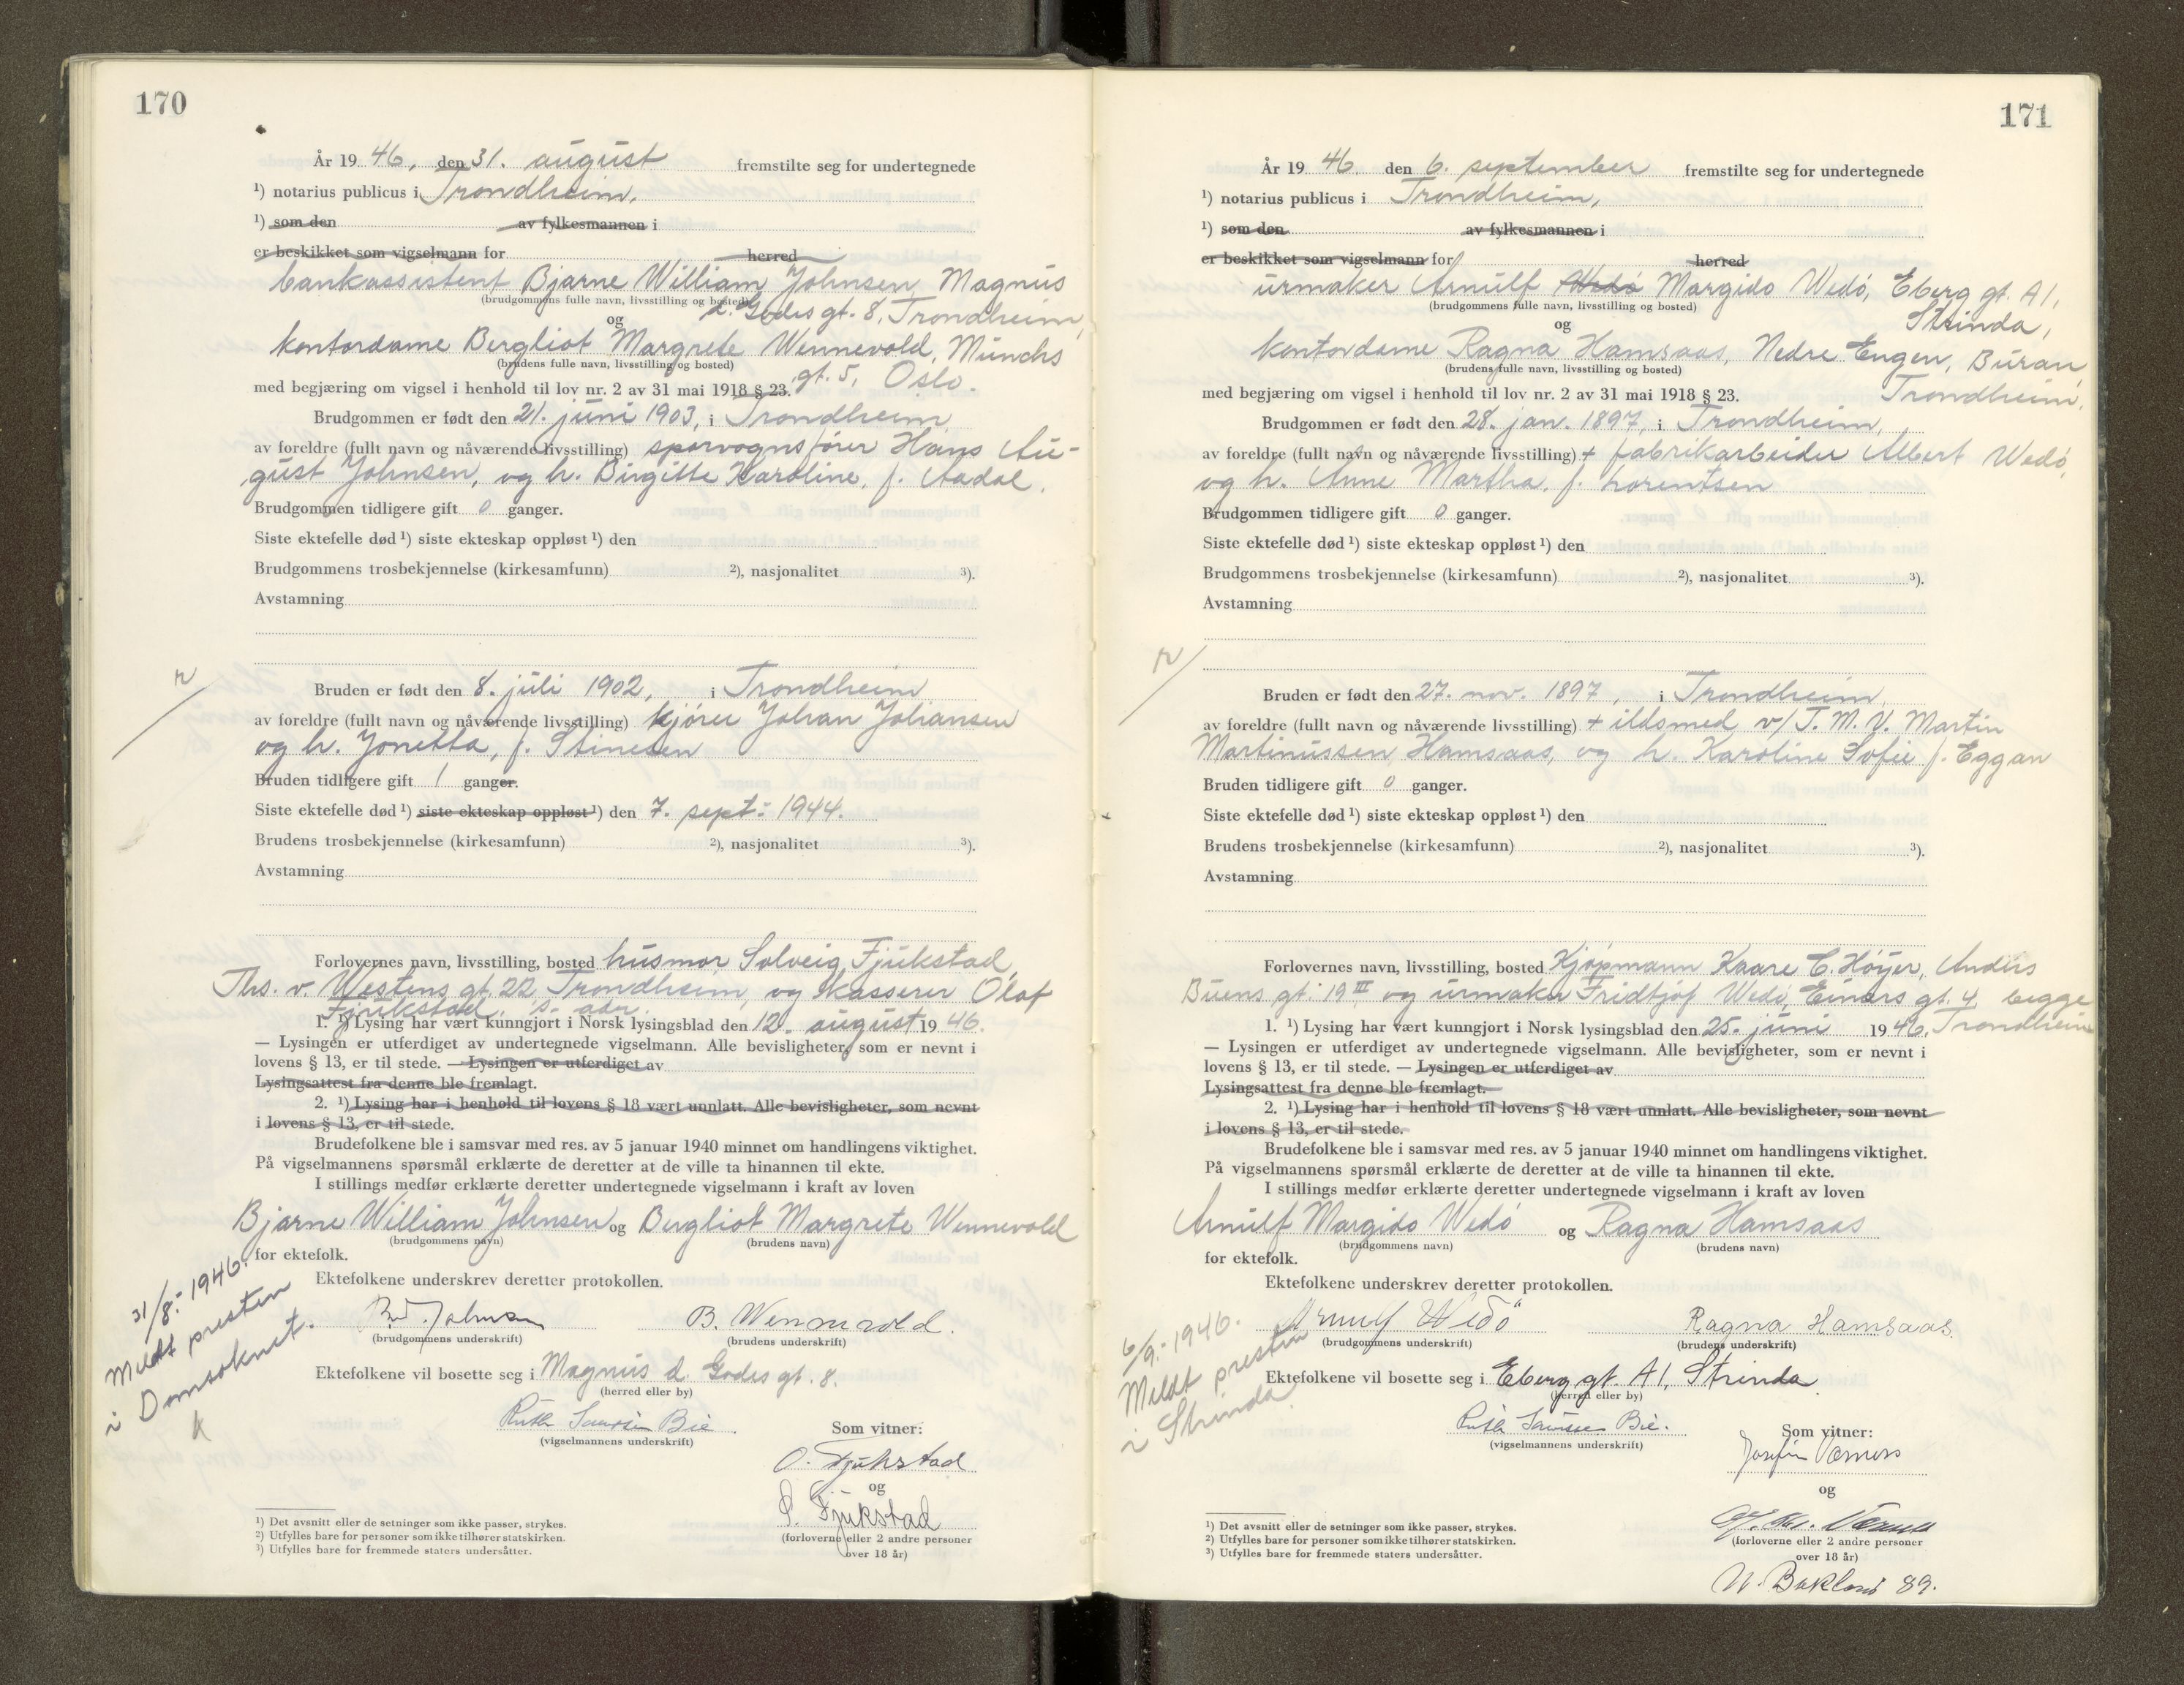 170
År 19 46, den 31. august fremstilte seg for undertegnede
¹) notarius publicus i Trondheim.
¹) som den av fylkesmannen i
er beskikket som vigselmann for herred
bankassistent Bjarne William Johnsen, Magnus
(brudgommens fulle navn, livsstilling og bosted)
d. Godes gt. 8, Trondheim,
og
kontordame Bergliot Margrete Wennevold, Munchs
(brudens fulle navn, livsstilling og bosted)
gt. 5, Oslo.
med begjæring om vigsel i henhold til lov nr. 2 av 31 mai 1918 § 23.
Brudgommen er født den 21. juni 1903, i Trondheim
av foreldre (fullt navn og nåværende livsstilling) sporvognsfører Hans Au-
gust Johnsen, og h. Birgitte Karoline, f. Aadal.
Brudgommen tidligere gift 0 ganger.
Siste ektefelle død ¹) siste ekteskap oppløst ¹) den
Brudgommens trosbekjennelse (kirkesamfunn) ²), nasjonalitet ³).
Avstamning
Bruden er født den 8. juli 1902, i Trondheim
av foreldre (fullt navn og nåværende livsstilling) kjører Johan Johansen
og h. Jonetta, f. Stinesen
Bruden tidligere gift 1 ganger.
Siste ektefelle død ¹) siste ekteskap oppløst ¹) den 7. sept. 1944.
Brudens trosbekjennelse (kirkesamfunn) ²), nasjonalitet ³).
Avstamning
Forlovernes navn, livsstilling, bosted husmor Solveig Fjukstad,
Ths. v. Westens gt. 22, Trondheim, og kasserer Olaf
Fjukstad, s. adr.
1. ¹) Lysing har vært kunngjort i Norsk lysingsblad den 12. august 19 46.
— Lysingen er utferdiget av undertegnede vigselmann. Alle bevisligheter, som er nevnt i
lovens § 13, er til stede. — Lysingen er utferdiget av
Lysingsattest fra denne ble fremlagt.
2. ¹) Lysing har i henhold til lovens § 18 vært unnlatt. Alle bevisligheter, som nevnt
i lovens § 13, er til stede.
Brudefolkene ble i samsvar med res. av 5 januar 1940 minnet om handlingens viktighet.
På vigselmannens spørsmål erklærte de deretter at de ville ta hinannen til ekte.
I stillings medfør erklærte deretter undertegnede vigselmann i kraft av loven
Bjarne William Johnsen og Bergliot Margrete Wennevold
(brudgommens navn) (brudens navn)
for ektefolk.
Ektefolkene underskrev deretter protokollen.
31/8.- 1946.
Meldt presten
i Domsoknet.
B.W. Johnsen B. Wennevold.
(brudgommens underskrift) (brudens underskrift)
Ektefolkene vil bosette seg i Magnus d. Godes gt. 8.
(herred eller by)
Ruth Sauvsen Bie
(vigselmannens underskrift)
Som vitner:
O. Fjukstad
og
S. Fjukstad
(forloverne eller 2 andre personer
over 18 år)
¹) Det avsnitt eller de setninger som ikke passer, strykes.
²) Utfylles bare for personer som ikke tilhører statskirken.
³) Utfylles bare for fremmede staters undersåtter.
171
År 19 46 den 6. september fremstilte seg for undertegnede
¹) notarius publicus i Trondheim,
¹) som den av fylkesmannen i
er beskikket som vigselmann for herred
urmaker Arnulf Wedø Margido Wedø, Eberg gt. A1,
(brudgommens fulle navn, livsstilling og bosted)
Strinda,
og
kontordame Ragna Hamsaas, Nedre Engen, Buran,
(brudens fulle navn, livsstilling og bosted)
med begjæring om vigsel i henhold til lov nr. 2 av 31 mai 1918 § 23. Trondheim.
Brudgommen er født den 28. jan. 1897, i Trondheim,
av foreldre (fullt navn og nåværende livsstilling) + fabrikarbeider Albert Wedø,
og h. Anne Martha, f. Lorentsen
Brudgommen tidligere gift 0 ganger.
Siste ektefelle død ¹) siste ekteskap oppløst ¹) den
Brudgommens trosbekjennelse (kirkesamfunn) ²), nasjonalitet ³).
Avstamning
Bruden er født den 27. nov. 1897, i Trondheim,
av foreldre (fullt navn og nåværende livsstilling) + ildsmed v/ T. M. V. Martin
Martinussen Hamsaas, og h. Karoline Sofie f. Eggan
Bruden tidligere gift 0 ganger.
Siste ektefelle død ¹) siste ekteskap oppløst ¹) den
Brudens trosbekjennelse (kirkesamfunn) ²), nasjonalitet ³).
Avstamning
Forlovernes navn, livsstilling, bosted Kjøpmann Kaare C. Høyer, Anders
Buens gt. 19 III og urmaker Fridtjof Wedø, Einars gt. 4, begge
Trondheim
1. ¹) Lysing har vært kunngjort i Norsk lysingsblad den 25. juni 19 46.
— Lysingen er utferdiget av undertegnede vigselmann. Alle bevisligheter, som er nevnt i
lovens § 13, er til stede. — Lysingen er utferdiget av
Lysingsattest fra denne ble fremlagt.
2. ¹) Lysing har i henhold til lovens § 18 vært unnlatt. Alle bevisligheter, som nevnt
i lovens § 13, er til stede.
Brudefolkene ble i samsvar med res. av 5 januar 1940 minnet om handlingens viktighet.
På vigselmannens spørsmål erklærte de deretter at de ville ta hinannen til ekte.
I stillings medfør erklærte deretter undertegnede vigselmann i kraft av loven
Arnulf Margido Wedø og Ragna Hamsaas
(brudgommens navn) (brudens navn)
for ektefolk.
Ektefolkene underskrev deretter protokollen.
6/9.- 1946.
Meldt presten
i Strinda.
Arnulf Wedö Ragna Hamsaas.
(brudgommens underskrift) (brudens underskrift)
Ektefolkene vil bosette seg i Eberg gt. A1, Strinda
(herred eller by)
Ruth Sauvsen Bie.
(vigselmannens underskrift)
Som vitner:
Josefin Værnes
og
Værnes
(forloverne eller 2 andre personer
over 18 år)
N. Bakland 89.
¹) Det avsnitt eller de setninger som ikke passer, strykes.
²) Utfylles bare for personer som ikke tilhører statskirken.
³) Utfylles bare for fremmede staters undersåtter.